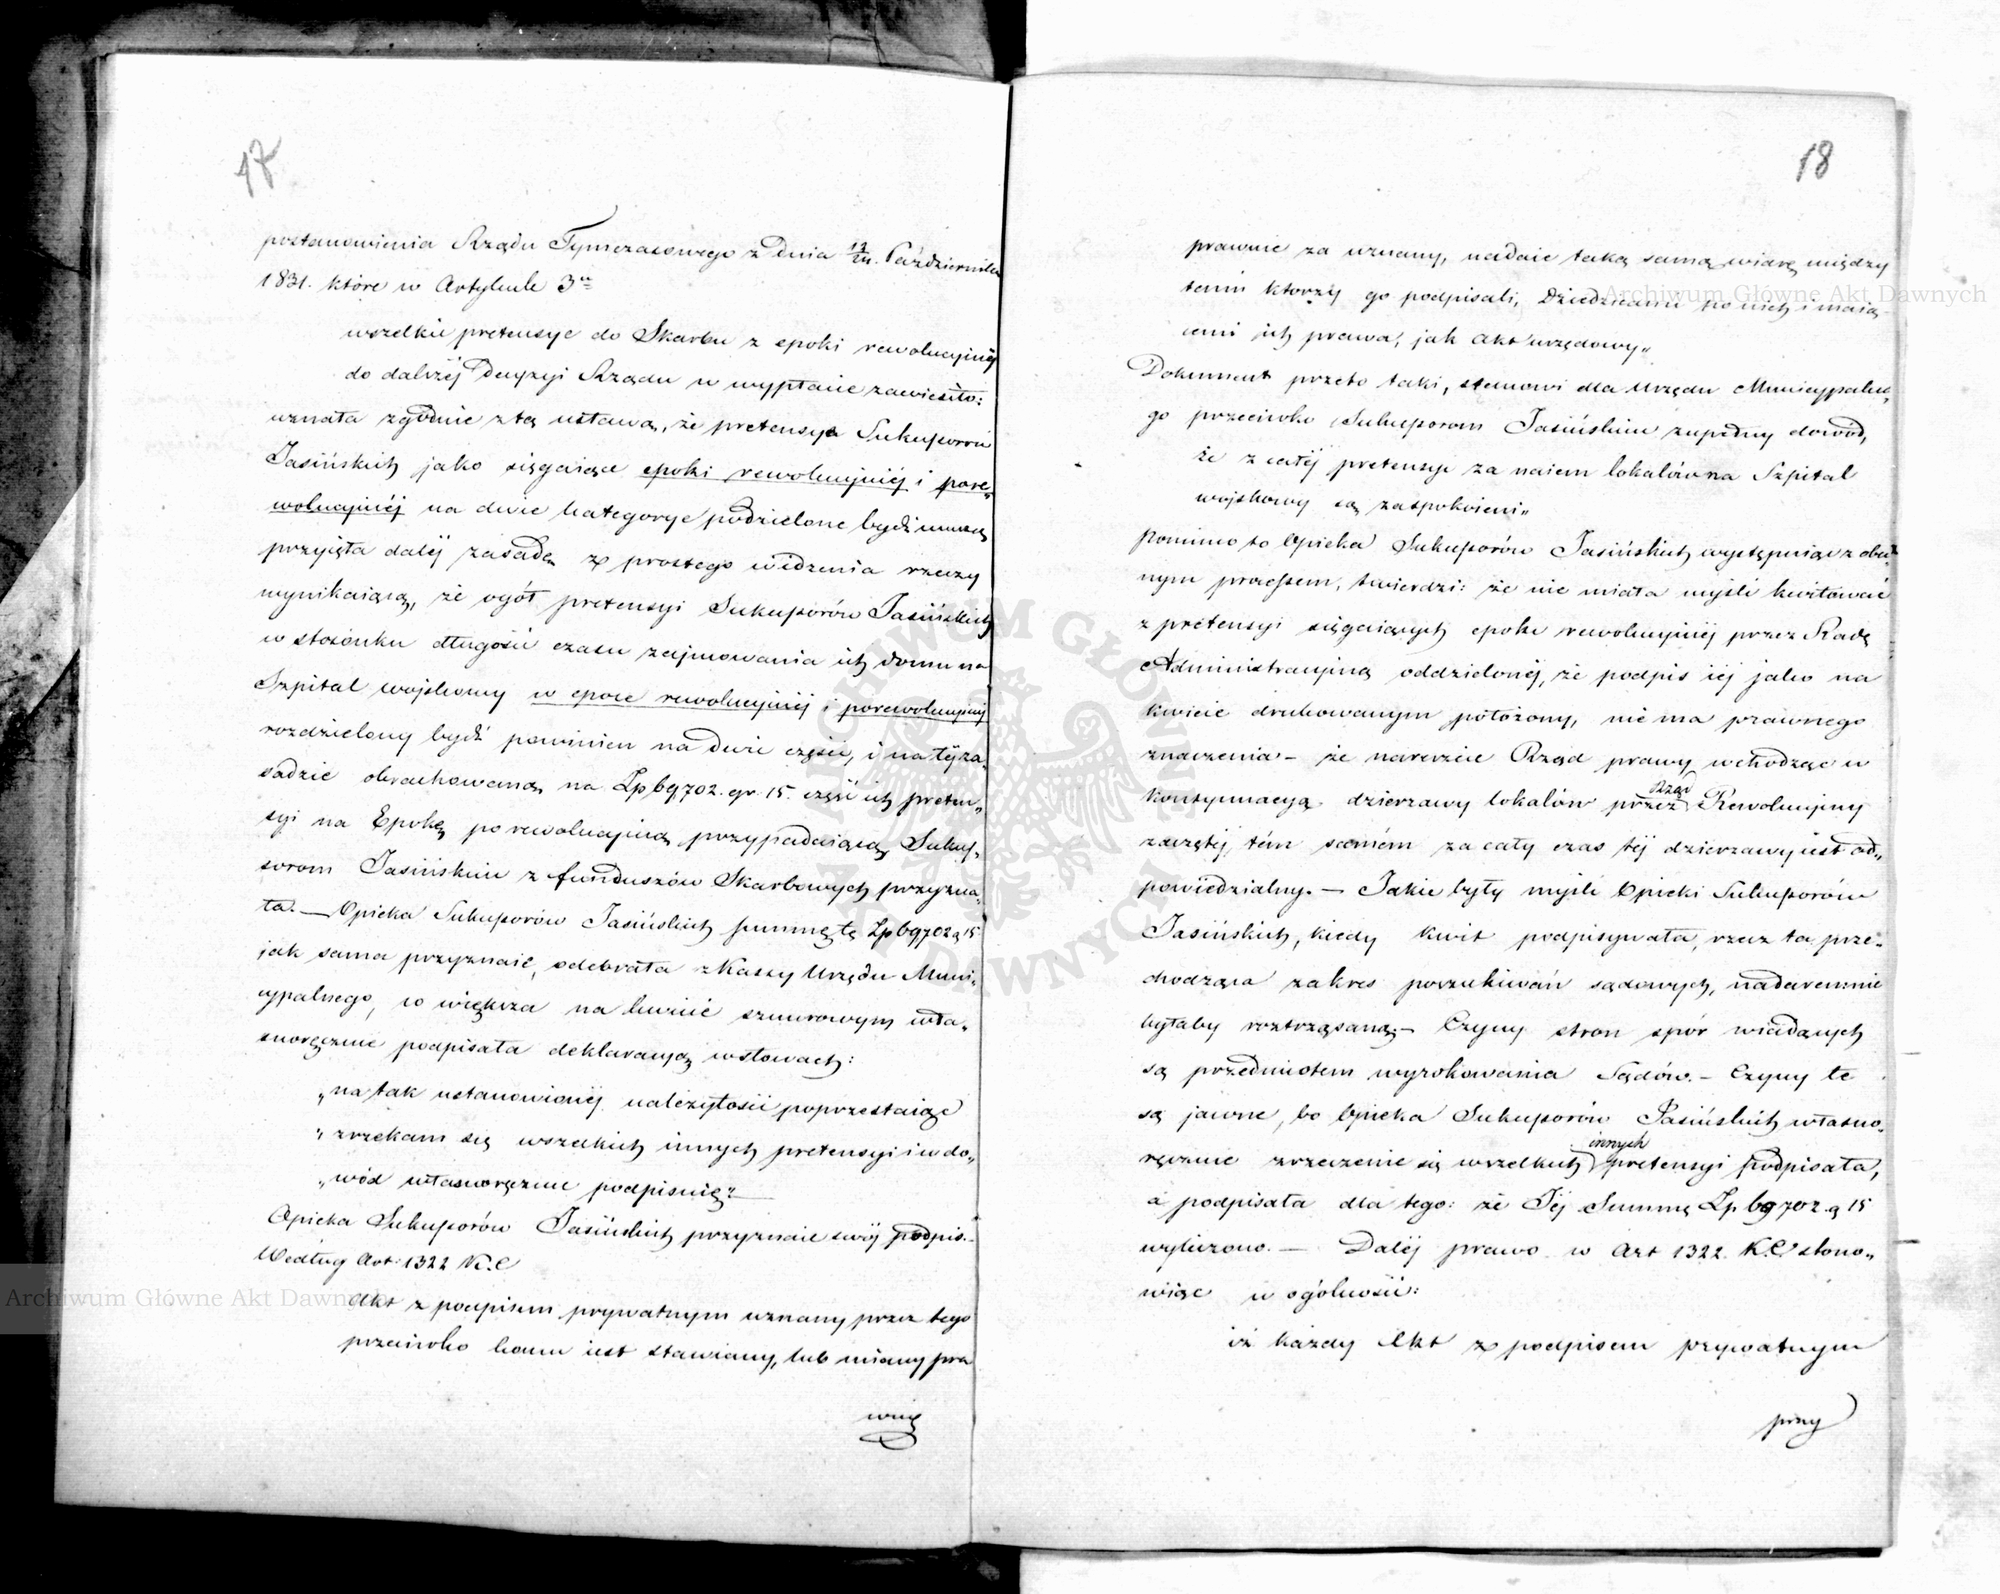 17
postanowienia Rządu Tymczasowego z dnia Października
1831. które w Artykule 3m
wszelkie pretensye do Skarbu z epoki rewolucyjnéj
do dalszéj decyzyi Rządu w wypłacie zawiesiło:
uznała zgodnie z tą ustawą, że pretensye Sukcessorów
Jasińskich jako sięgaiące epoki rewolucyjnéj i pore„
wolucyjnéj na dwie kategorye podzielone bydź muszą
przyjęła daléj zasadę z prostego widzenia rzeczy
wynikaiącą, że ogół pretensyi Sukcessorów Jasińskich
w stosunku długości czasu zajmowania ich domu na
Szpital wojskowy w epoce rewolucyjnéj i porewolucyjnéj
rozdzielony bydź powinien na dwie części, i na téj za„
sadzie obrachowaną na Zp 69702. gr. 15. część ich preten„
syi na Epokę porewolucyjną przypadaiącą Sukces„
sorom Jasińskim z funduszów Skarbowych przyzna„
ła. — Opieka Sukcessorów Jasińskich summę tę Zp 69702 g 15
jak sama przyznaie, odebrała z Kassy Urzędu Muni„
cypalnego, co większa na kwicie sznurowym wła„
snoręcznie podpisała deklaracyą w słowach:
„na tak ustanowionéj należytości poprzestaiąc
„zrzekam się wszelkich innych pretensyi i w do„
„wód własnoręcznie podpisuię"
Opieka Sukcessorów Jasińskich przyznaie swój podpis.
Według Art: 1322 K.C
Akt z podpisem prywatnym uznany przez tego
przeciwko komu iest stawiany, lub miany pra
wnie
18
prawnie za uznany, nadaie taką samą wiarę między
temi którzy go podpisali, Dziedzicami po nich i maią„
cemi ich prawa, jak akt urzędowy„
Dokument przeto taki, stanowi dla Urzędu Municypalne„
go przeciwko Sukcessorom Jasińskim zupełny dowód,
że z całéj pretensyi za naiem lokalów na Szpital
wojskowy są zaspokoieni„
pomimo to Opieka Sukcessorów Jasińskich występuiąc z obec„
nym processem, twierdzi: że nie miała myśli kwitować
z pretensyi sięgaiących epoki rewolucyjnéj przez Radę
Administracyjną oddzielonéj, że podpis iéj jako na
kwicie drukowanym położony, nie ma prawnego
znaczenia – że nareszcie Rząd prawy wchodząc w
kontynuacyą dzierzawy lokalów przez Rząd Rewolucyjny
zaczętéj, tém samém za cały czas téj dzierzawy iest od„
powiedzialny. — Jakie były myśli Opieki Sukcessorów
Jasińskich, kiedy kwit podpisywała, rzecz ta prze„
chodząca zakres poszukiwań sądowych, nadaremnie
byłaby roztrząsaną – Czyny stron spór wiodących
są przedmiotem wyrokowania Sądów. – Czyny te
są jawne, bo Opieka Sukcessorów Jasińskich własno„
ręcznie zrzeczenie się wszelkich innych pretensyi podpisała,
a podpisała dla tego: że Jéj Summę Zp 69702 g 15
wyliczono. — Daléj prawo w Art 1322. K.C stano„
wiąc w ogólności:
iż każdy Akt z podpisem prywatnym
przy
Archiwum Główne Akt Dawnych
Archiwum Główne Akt Dawnych
ARCHIWUM GŁÓWNE AKT DAWNYCH